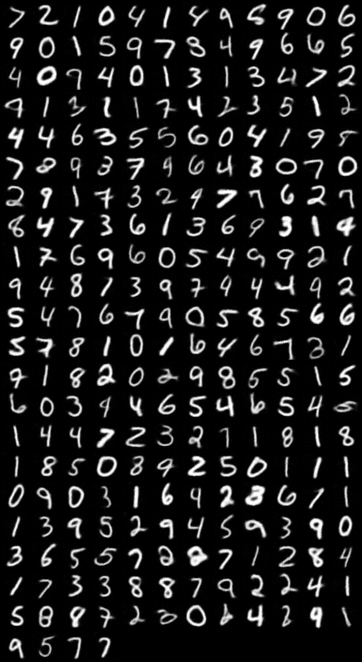 7 2 1 0 4 1 4 9 5 9 0 6
9 0 1 5 9 7 8 4 9 6 6 5
4 0 7 4 0 1 3 1 3 4 7 2
7 1 2 1 1 7 4 2 3 5 1 2
4 4 6 3 5 5 6 0 4 1 9 5
7 8 9 3 7 4 6 4 3 0 7 0
2 9 1 7 3 2 9 7 7 6 2 7
8 4 7 3 6 1 3 6 9 3 1 4
1 7 6 9 6 0 5 4 9 9 2 1
9 4 8 7 3 9 7 4 4 4 9 2
5 4 7 6 7 9 0 5 8 5 6 6
5 7 8 1 0 1 6 4 6 7 3 1
7 1 8 2 0 2 9 8 5 5 1 5
6 0 3 4 4 6 5 4 6 5 4 5
1 4 4 7 2 3 2 7 1 8 1 8
1 8 5 0 8 9 2 5 0 1 1 1
0 9 0 3 1 6 4 2 3 6 1 1
1 3 9 5 2 9 4 5 9 3 9 0
3 6 5 5 7 2 2 7 1 2 8 4
1 7 3 3 8 8 7 9 2 2 4 1
5 8 8 7 2 3 0 6 4 2 9 1
9 5 7 7